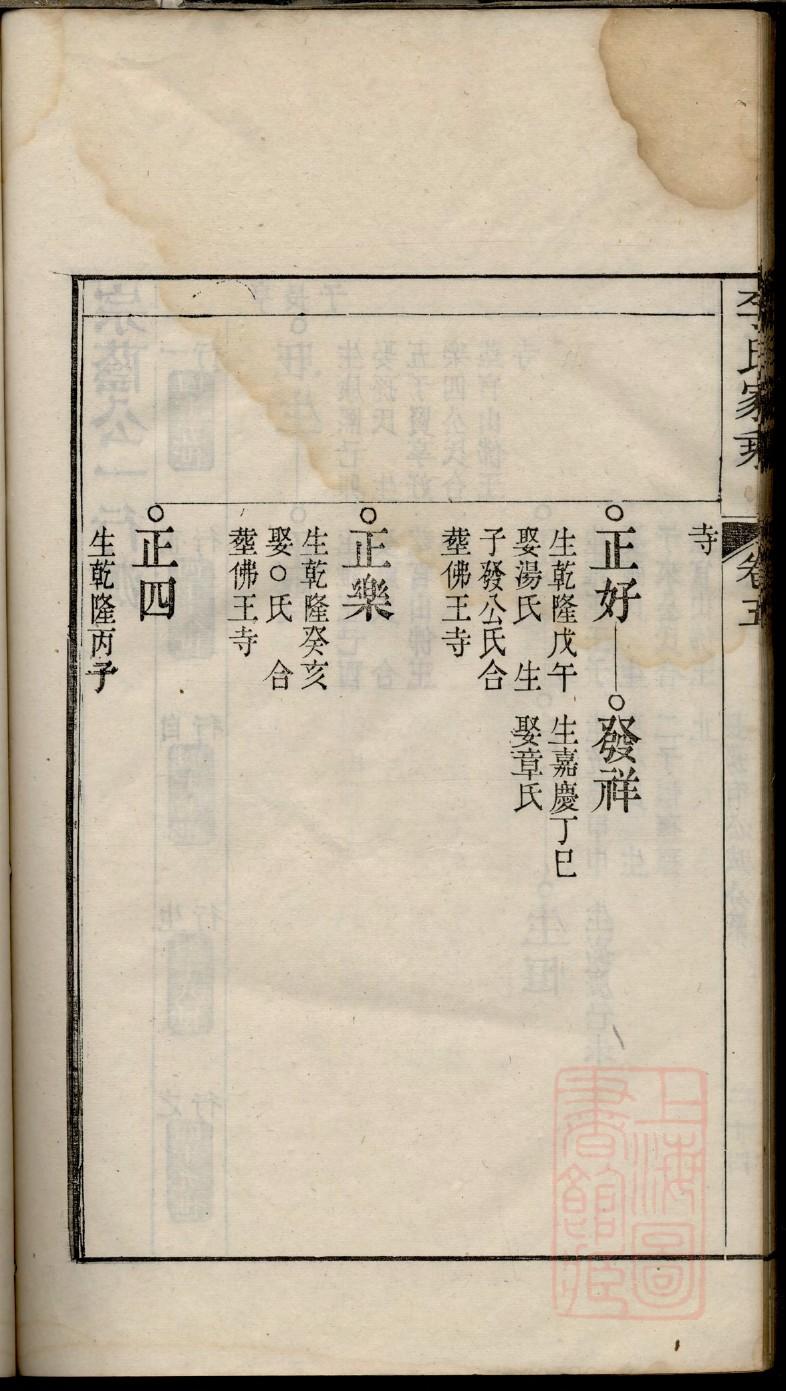 李氏家乘
卷五
寺
正好
生乾隆戊午
娶湯氏 生
子發公氏合
塟佛王寺
發祥
生嘉慶丁巳
娶章氏
正樂
生乾隆癸亥
娶○氏 合
塟佛王寺
正四
生乾隆丙子
上海圖
書館藏